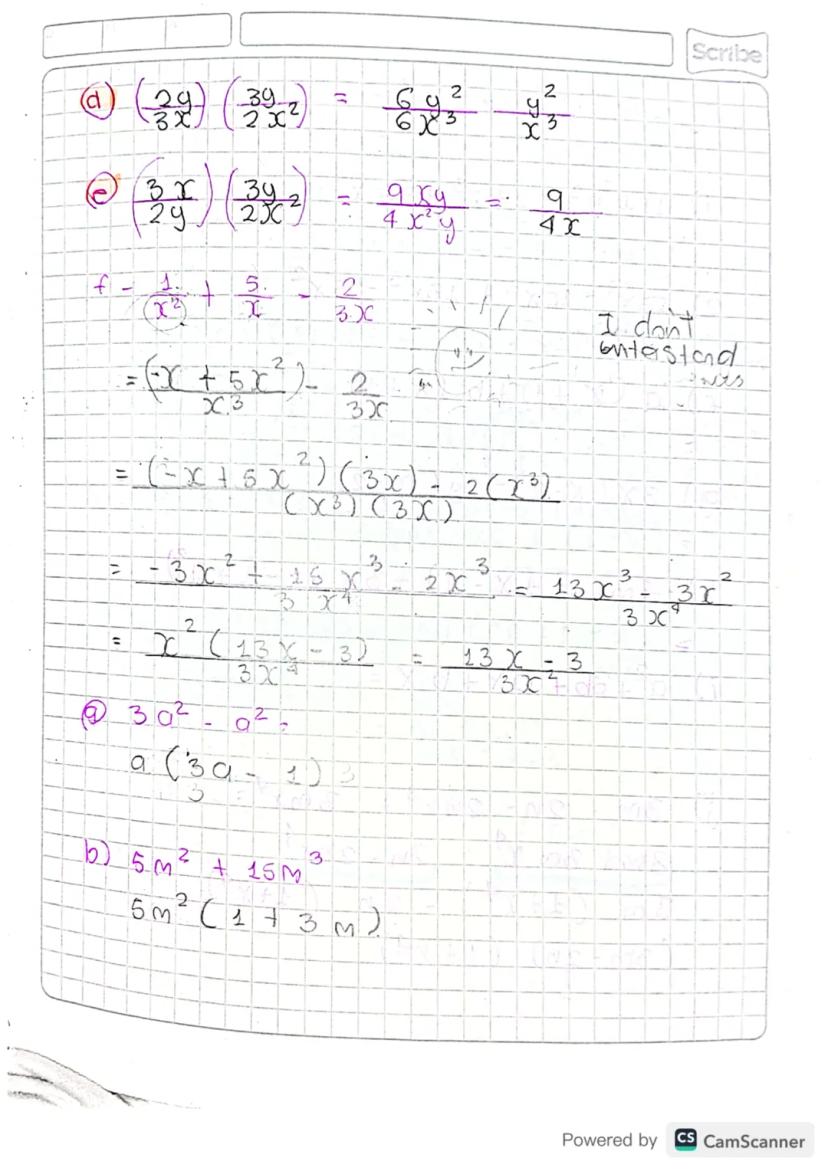 Scribe
d) (2y/3x) (3y/2x²) = 6y²/6x³ y²/x³
e) (3x/2y) (3y/2x²) = 9xy/4x²y = 9/4x
f - 1/x² + 5/x - 2/3x
I don't
enterstand
= (-x + 5x²/x³) - 2/3x
= (-x + 5x²)(3x) - 2(x³)/(x³)(3x)
= -3x² + 15x³ - 2x³/3x⁴ = 13x³ - 3x²/3x⁴
= x²(13x - 3)/3x⁴ = 13x - 3/3x²
a) 3a² - a² =
a (3a - 1)
3
b) 5m² + 15m³
5m² (1 + 3m)
Powered by CS CamScanner